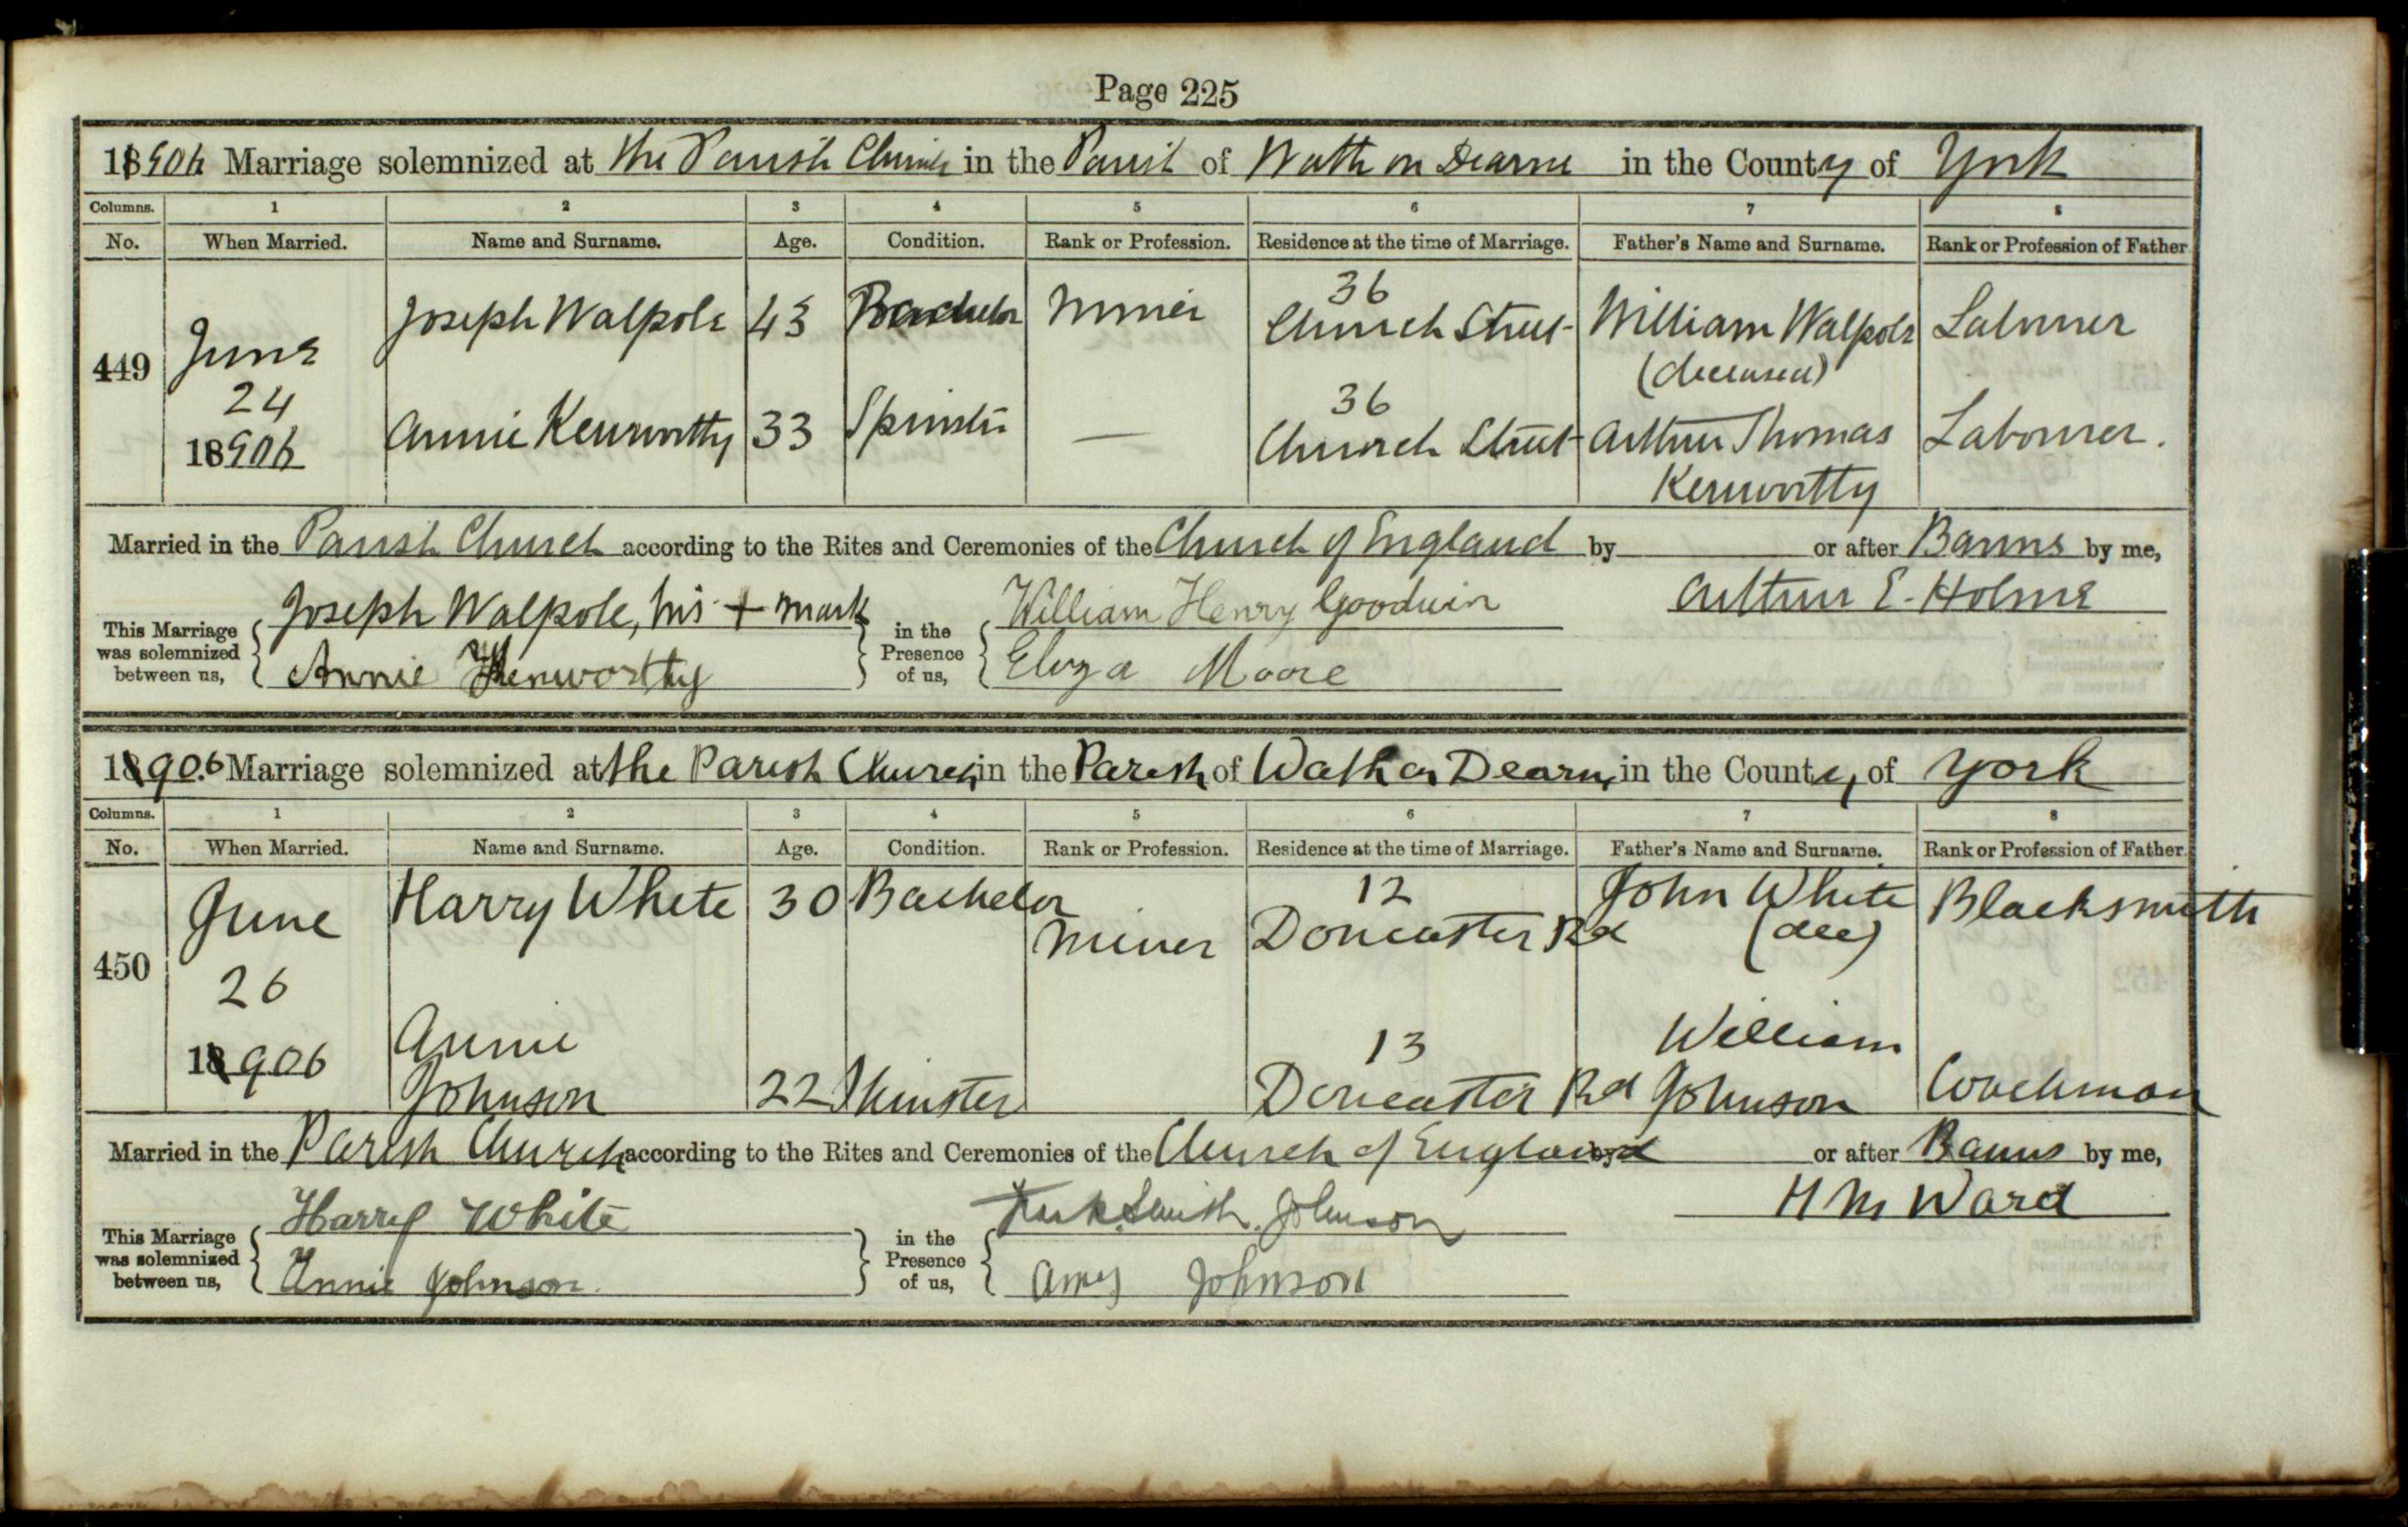 Page 225
18906 Marriage solemnized at the Parish Church in the Parish of Wath on Dearne in the County of York
Columns. 1 2 3 4 5 6 7 8
No. When Married. Name and Surname. Age. Condition. Rank or Profession. Residence at the time of Marriage. Father's Name and Surname. Rank or Profession of Father
449 June 24 18906 Joseph Walpole 43 Bachelor Miner 36 Church Street William Walpole (deceased) Labourer
Annie Kenworthy 33 Spinster — 36 Church Street Arthur Thomas Kenworthy Labourer.
Married in the Parish Church according to the Rites and Ceremonies of the Church of England by or after Banns by me,
This Marriage was solemnized between us, Joseph Walpole, his + mark in the Presence of us, William Henry Goodwin Arthur E. Holme
Annie Kenworthy Eliza Moore
18906 Marriage solemnized at the Parish Church in the Parish of Wath on Dearne in the County of York
Columns. 1 2 3 4 5 6 7 8
No. When Married. Name and Surname. Age. Condition. Rank or Profession. Residence at the time of Marriage. Father's Name and Surname. Rank or Profession of Father
450 June 26 18906 Harry White 30 Bachelor Miner 12 Doncaster Rd John White (dec) Blacksmith
Annie Johnson 22 Spinster 13 Doncaster Rd William Johnson Coachman
Married in the Parish Church according to the Rites and Ceremonies of the Church of England by or after Banns by me,
This Marriage was solemnized between us, Harry White in the Presence of us, Smith Johnson H M Ward
Annie Johnson Amy Johnson